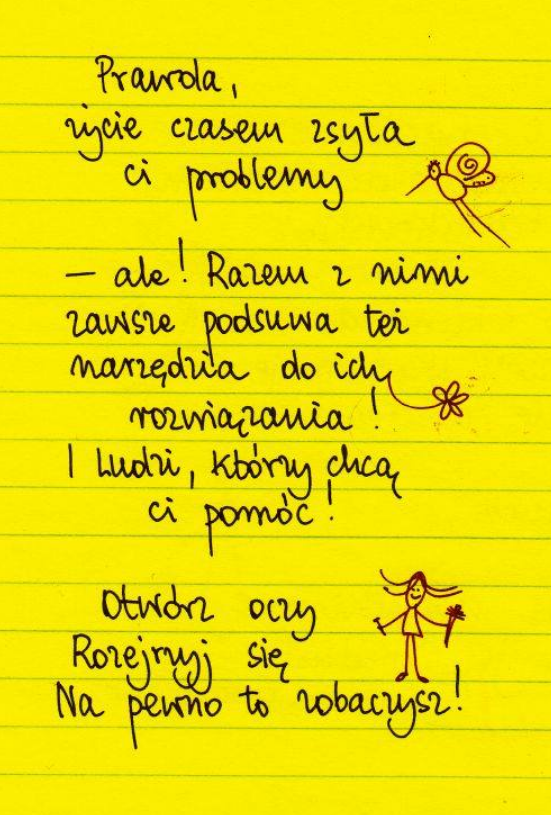 Prawda,
życie czasem zsyła
ci problemy
– ale! Razem z nimi
zawsze podsuwa też
narzędzia do ich
rozwiązania!
I Ludzi, którzy chcą
ci pomóc!
Otwórz oczy
Rozejrzyj się
Na pewno to zobaczysz!